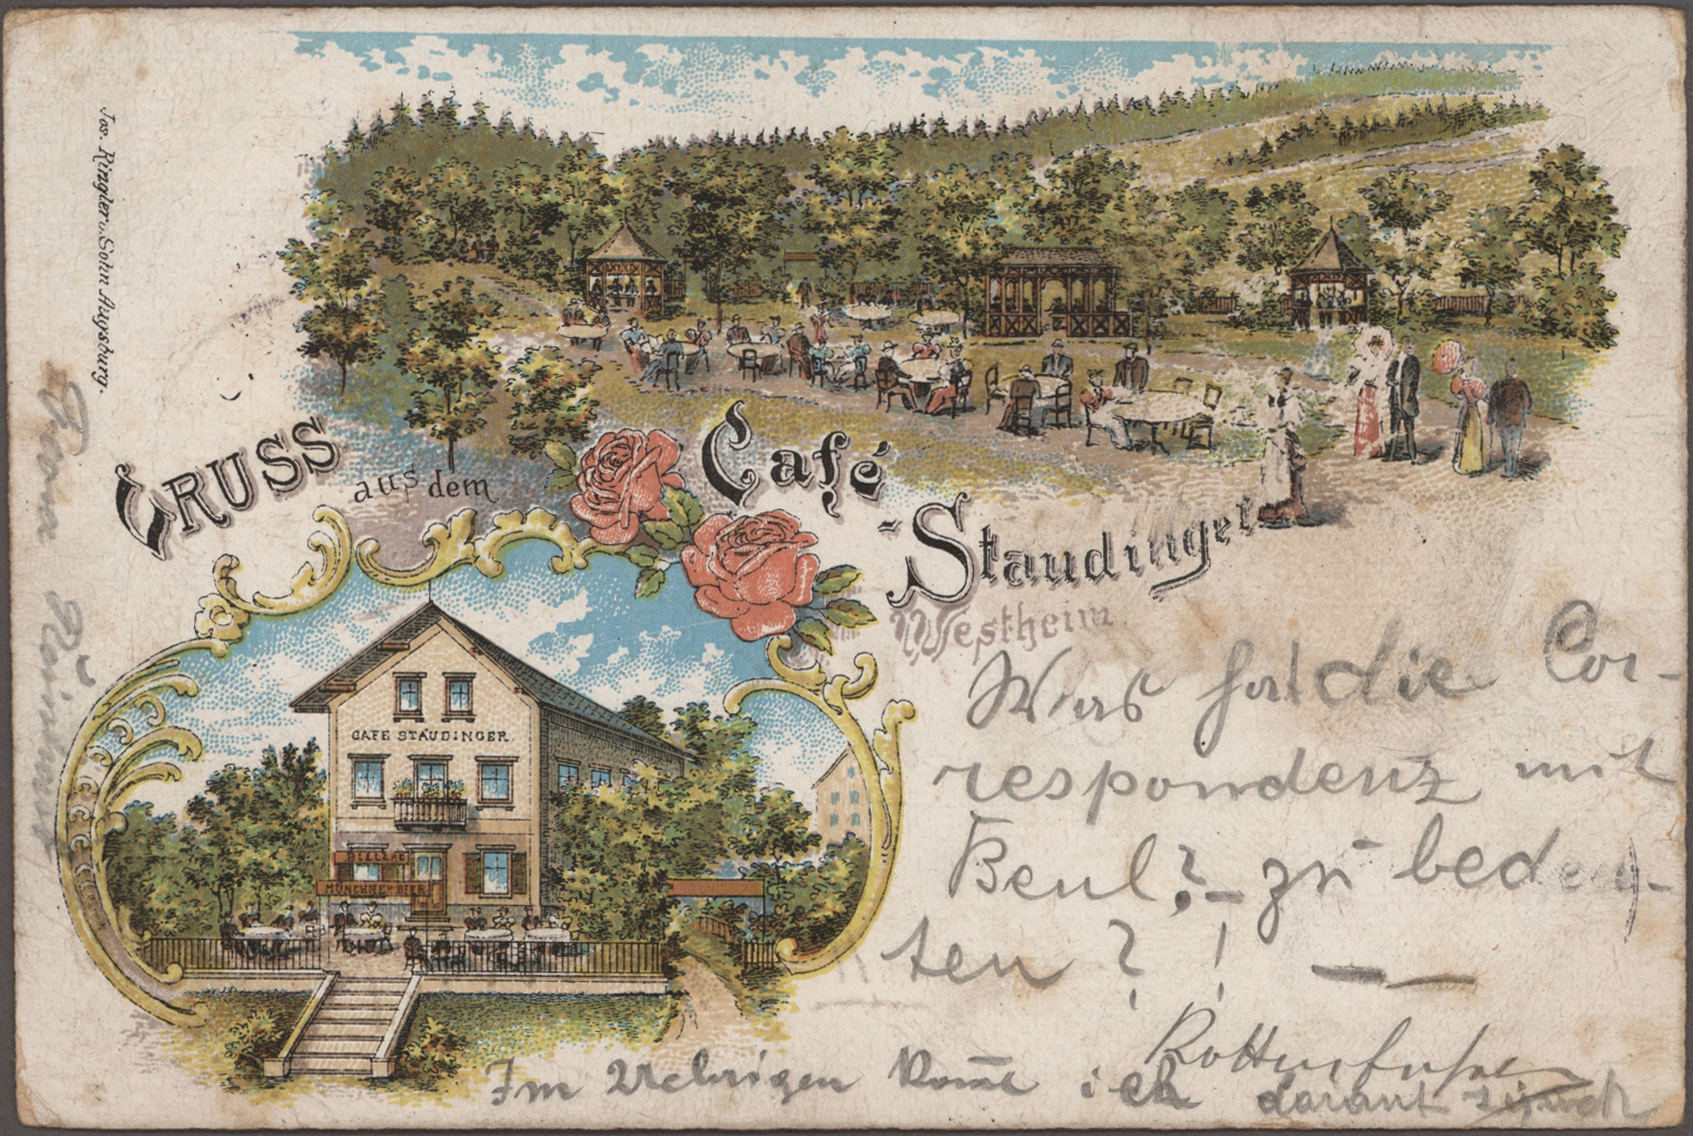 Jos. Ringler u. Sohn Augsburg.
GRUSS
aus dem
Café
-Staudinger
Westheim
CAFE STAUDINGER
BILLARD
MÜNCHNER BIER
Was hat die Cor-
respondenz mit
Beul,? – zu bedeu-
ten ? ! —
Im Uebrigen kom̄e ich darauf zurück